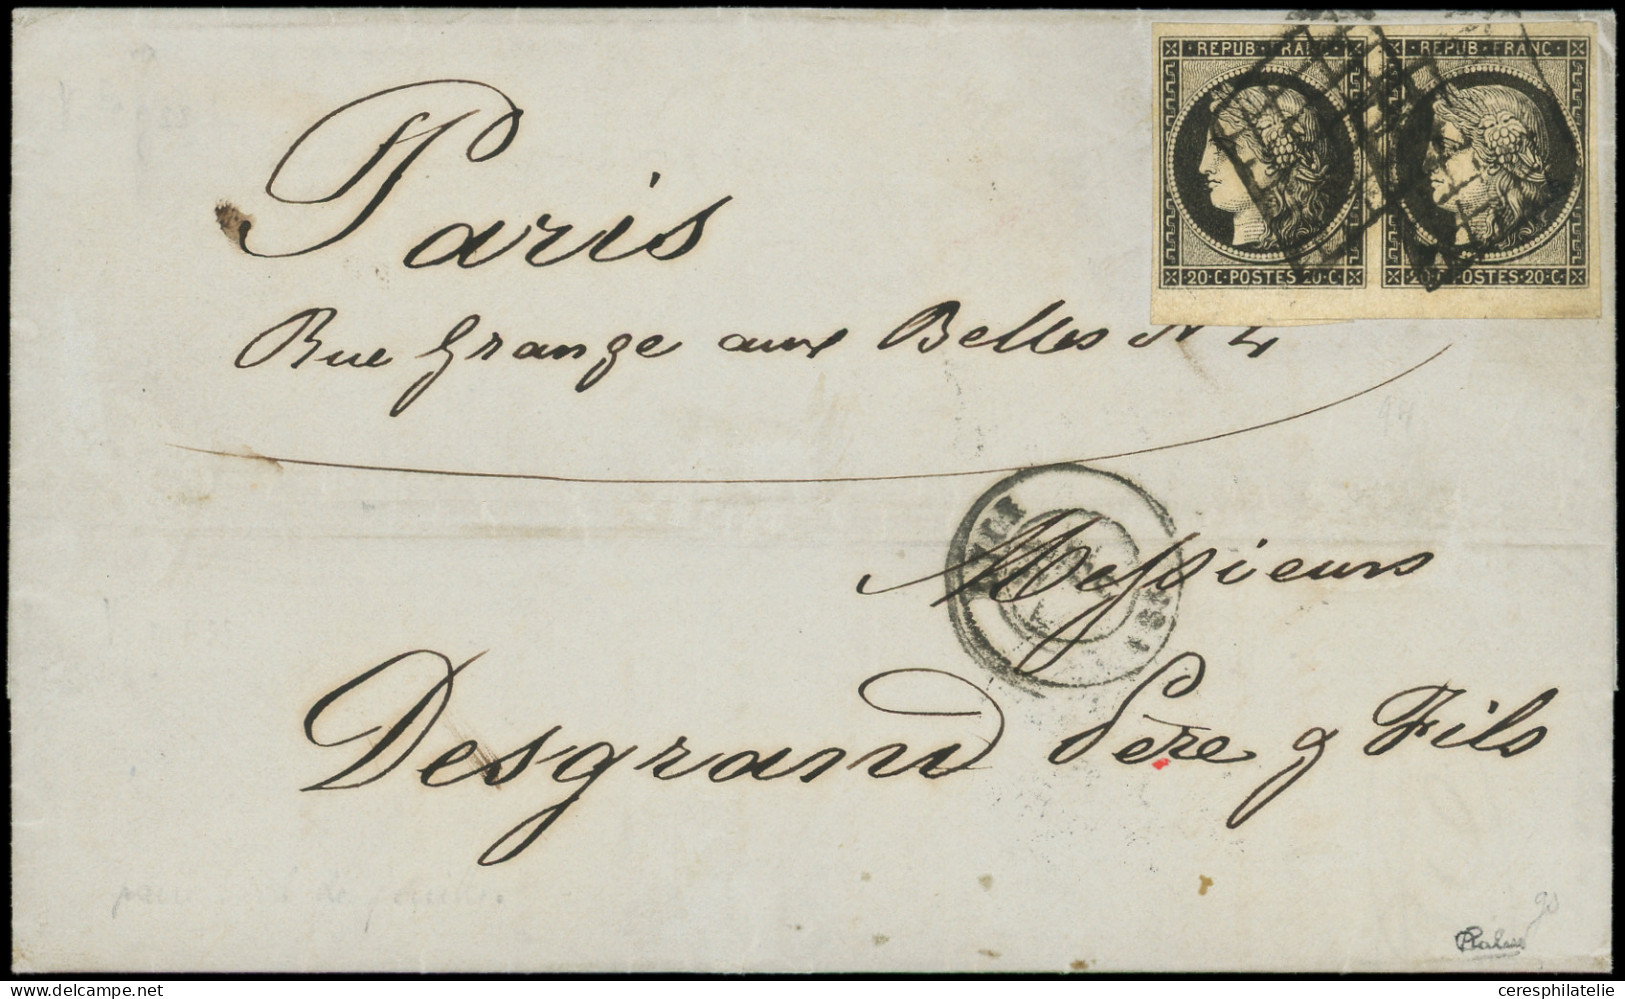 REPUB · FRANC ·
REPUB · FRANC ·
20 · C · POSTES · 20 · C ·
20 · C · POSTES · 20 · C ·
Paris
Rue Grange aux Belles N 4
Messieurs
Desgrand Père & Fils
94
90
www.delcampe.net
ceresphilatelie